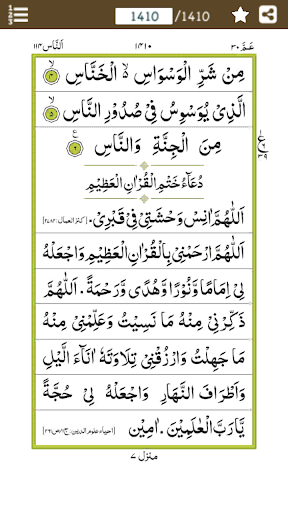 1410 /1410
اَلنَّاس ١١٤ ١٤١٠ عَمَّ ٣٠
مِنْ شَرِّ الْوَسْوَاسِ ۙ الْخَنَّاسِ ۪ۙ ٤
الَّذِيْ يُوَسْوِسُ فِيْ صُدُوْرِ النَّاسِ ۙ ٥
مِنَ الْجِنَّةِ وَالنَّاسِ ٦
دُعَآءُ خَتْمِ الْقُرْاٰنِ الْعَظِيْمِ
اَللّٰهُمَّ اٰنِسْ وَحْشَتِيْ فِيْ قَبْرِيْ۰ [کنز العمال: ٢٧٨٣]
اَللّٰهُمَّ ارْحَمْنِيْ بِالْقُرْاٰنِ الْعَظِيْمِ وَاجْعَلْهُ
لِيْ اِمَامًا وَّنُوْرًا وَّهُدًى وَّرَحْمَةً. اَللّٰهُمَّ
ذَكِّرْنِيْ مِنْهُ مَا نَسِيْتُ وَعَلِّمْنِيْ مِنْهُ
مَا جَهِلْتُ وَارْزُقْنِيْ تِلَاوَتَهٗ اٰنَآءَ الَّيْلِ
وَاَطْرَافَ النَّهَارِ وَاجْعَلْهُ لِيْ حُجَّةً
يَّارَبَّ الْعٰلَمِيْنَ. اٰمِيْن
منزل ٧